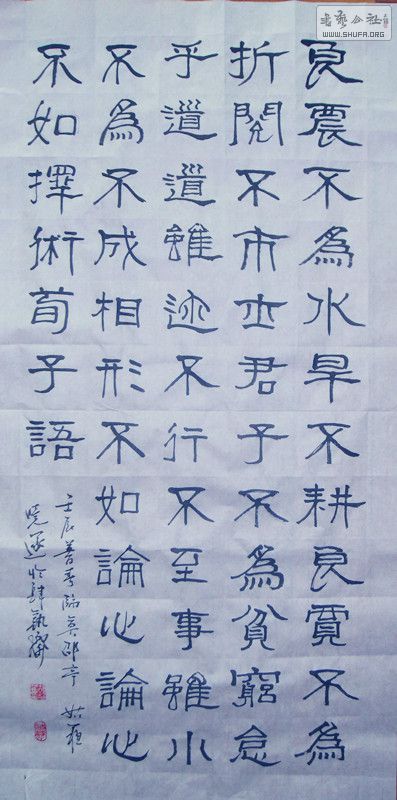 良農不為水旱不耕良賈不為
折閱不市士君子不為貧窮怠
乎道道雖迩不行不至事雖小
不為不成相形不如論心論心
不如擇術荀子語
壬辰暮春臨莫邵亭
書藝公社
WWW.SHUFA.ORG